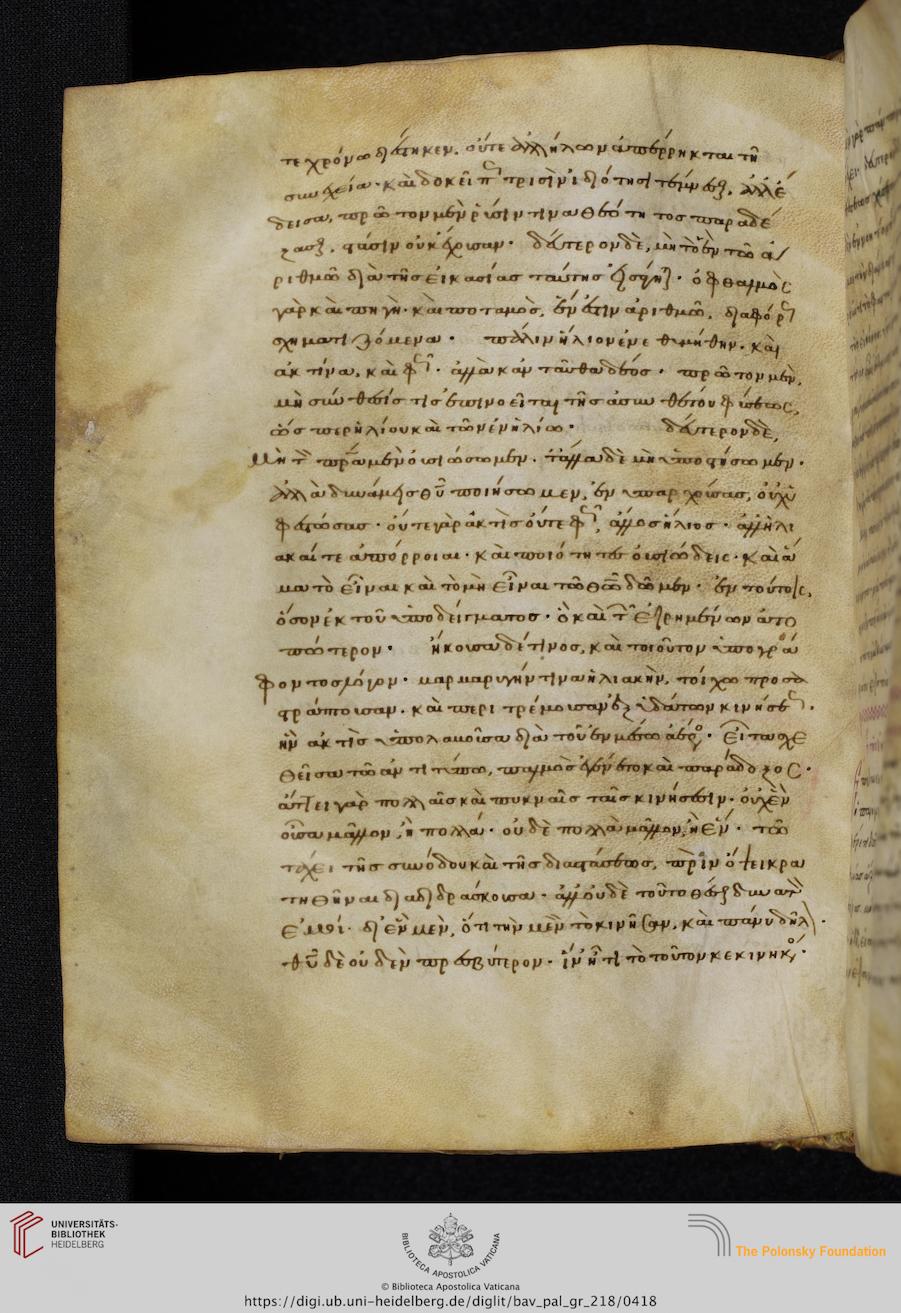 τε χρόνω διέστηκεν. οὔτε ἀλλήλων ἀπέρρηκται τῆ
συνεχεία· καὶ δοκεῖ πως τρισὶν ἰδιότησι τέμνεσθαι. ἀλλ' ἔ
δεισα, πρῶτον μὲν ῥύσιν τινα θεότητος παραδέ
ξασθαι. στάσιν οὐκ ἔχουσαν· δεύτερον δὲ, μὴ τὸ ἓν τῶ ἀ
ριθμῶ διὰ τῆς εἰκασίας ταύτης εἰσάγηται· ὀφθαλμὸς
γὰρ καὶ πηγὴ· καὶ ποταμὸς, ἕν ἐστιν ἀριθμῶ, διαφόρως
σχηματιζόμενα· πάλιν ἥλιον ἐνεθυμήθην. καὶ
ἀκτίνα, καὶ φῶς· ἀλλὰ κἀνταῦθα δέος· πρῶτον μὲν,
μὴ σύνθεσίς τις ἐπινοεῖται τῆς ἀσυνθέτου φύσεως,
ὥσπερ ἡλίου καὶ τῶν ἐν ἡλίω· δεύτερον δὲ,
μὴ τὸν πρα μὲν οὐσιώσωμεν. τἄλλα δὲ μὴ ὑποστήσωμεν·
ἀλλὰ δυνάμεις θυ ποιήσωμεν, ἐνυπαρχούσας, οὐχ ὑ
φεστώσας· οὔτε γὰρ ἀκτὶς οὔτε φῶς, ἄλλος ἥλιος· ἀλλ' ἡλι
ακαί τε ἀπόρροιαι· καὶ ποιότητες οὐσιώδεις· καὶ ἅ
μα τὸ εἶναι καὶ τὸ μὴ εἶναι τῶ θῶ δῶμεν· ἐν τούτοις,
ὅσον ἐκ τοῦ ὑποδείγματος· ὃ καὶ τῶν εἰρημένων ἀτο
πώτερον· ἤκουσα δέ τινος, καὶ τοιοῦτον ὑπογρά
φοντος λόγον· μαρμαρυγήν τινα ἡλιακὴν, τοίχω προσα
στράπτουσαν. καὶ περιτρέμουσαν ἐξ ὑδάτων κινήσεως·
ἣν ἀκτὶς ὑπολαβοῦσα διὰ τοῦ ἐν μέσω ἀέρος· εἶτα σχε
θεῖσα τῶ ἀντιτύπω, παλμὸς ἐγένετο καὶ παράδοξος·
ἄττει γὰρ πολλαῖς καὶ πυκναῖς ταῖς κινήσεσιν· οὐχ ἓν
οὖσα μᾶλλον, ἢ πολλά· οὐδὲ πολλὰ μᾶλλον, ἢ ἕν· τῶ
τάχει τῆς συνόδου καὶ τῆς διαστάσεως, πρὶν ὄψει κρα
τηθῆναι διαδιδράσκουσα· ἀλλ' οὐδὲ τοῦτο θέσθαι δυνατὸν
ἐμοί· δι' ἓν μὲν, ὅτι τὴν μὲν τὸ κινῆσαν, καὶ πάνυ δῆλον·
θυ δὲ οὐδὲν πρεσβύτερον· ἵν' ἦ τι τὸ τοῦτον κεκινηκός·
UNIVERSITÄTS-
BIBLIOTHEK
HEIDELBERG
BIBLIOTECA APOSTOLICA VATICANA
The Polonsky Foundation
© Biblioteca Apostolica Vaticana
https://digi.ub.uni-heidelberg.de/diglit/bav_pal_gr_218/0418